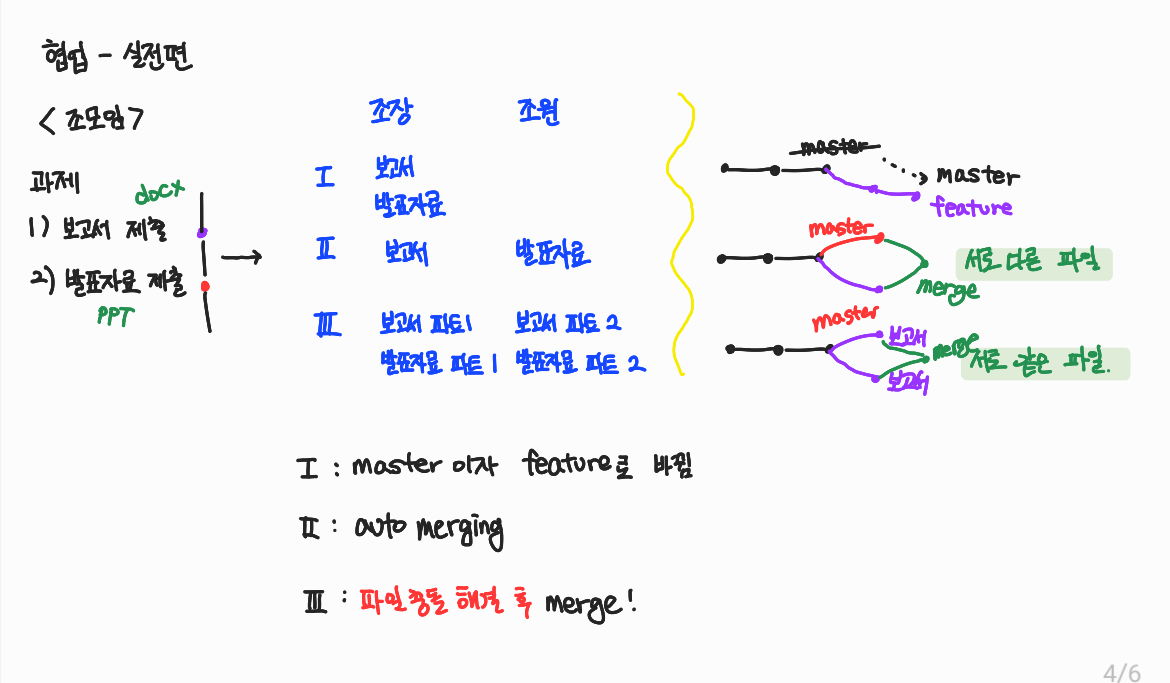 협업 - 실전편
<조모임>
과제
docx
1) 보고서 제출
2) 발표자료 제출
PPT
조장 조원
I 보고서
발표자료
II 보고서 발표자료
III 보고서 파트1 보고서 파트2
발표자료 파트1 발표자료 파트2
master
master
feature
master
서로 다른 파일
merge
master
보고서
merge
서로 같은 파일.
보고서
I : master 이자 feature로 바뀜
II : auto merging
III : 파일충돌 해결 후 merge!
4/6